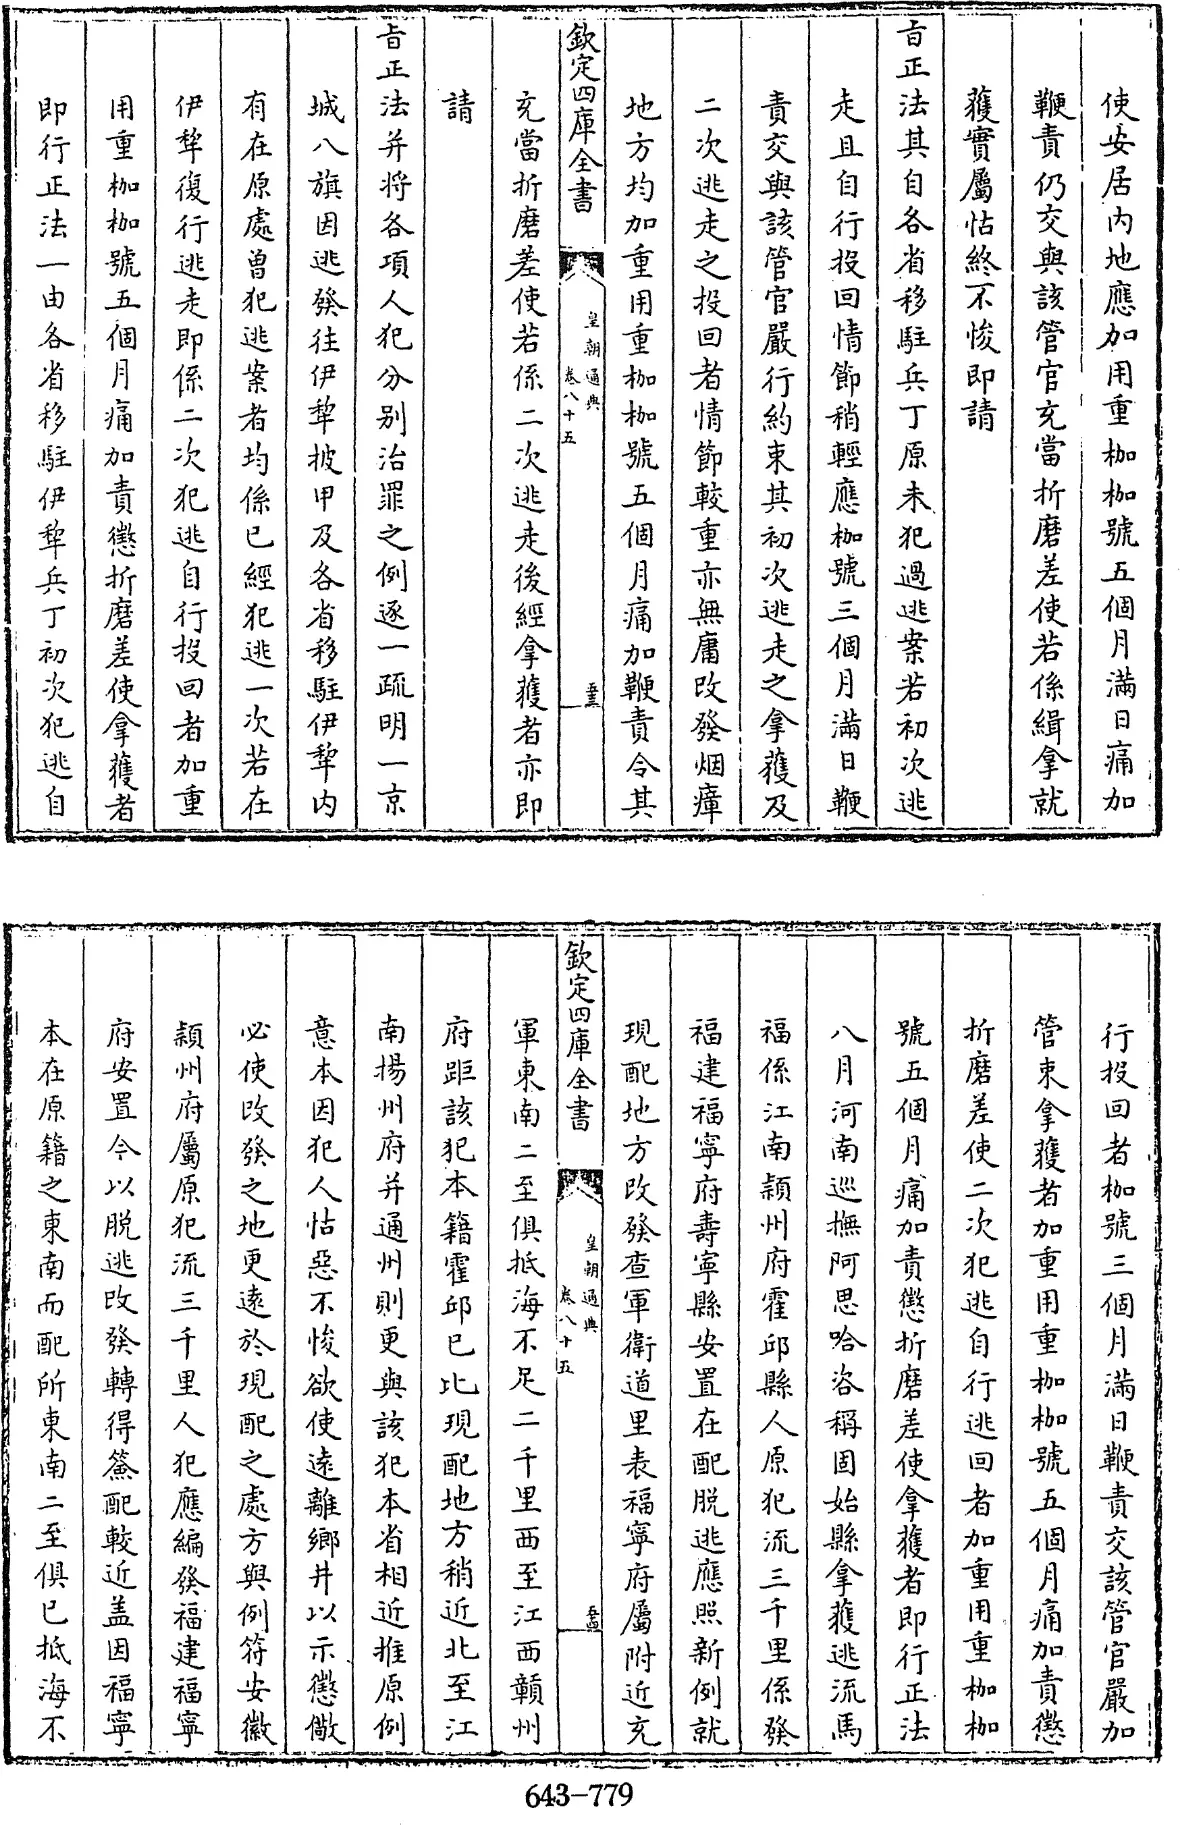 使安居内地應加用重枷枷號五個月滿日痛加
鞭責仍交與該管官充當折磨差使若係緝拿就
獲實屬怙終不悛即請
旨正法其自各省移駐兵丁原未犯過逃案若初次逃
走且自行投回情節稍輕應枷號三個月滿日鞭
責交與該管官嚴行約束其初次逃走之拿獲及
二次逃走之投回者情節較重亦無庸改發烟瘴
地方均加重用重枷枷號五個月痛加鞭責令其
欽定四庫全書
皇朝通典
卷八十五
至三
充當折磨差使若係二次逃走後經拿獲者亦即
請
旨正法并將各項人犯分别治罪之例逐一疏明一京
城八旗因逃發往伊犂披甲及各省移駐伊犂内
有在原處曽犯逃案者均係已經犯逃一次若在
伊犂復行逃走即係二次犯逃自行投回者加重
用重枷枷號五個月痛加責懲折磨差使拿獲者
即行正法一由各省移駐伊犂兵丁初次犯逃自
行投回者枷號三個月滿日鞭責交該管官嚴加
管束拿獲者加重用重枷枷號五個月痛加責懲
折磨差使二次犯逃自行逃回者加重用重枷枷
號五個月痛加責懲折磨差使拿獲者即行正法
八月河南巡撫阿思哈咨稱固始縣拿獲逃流馬
福係江南潁州府霍邱縣人原犯流三千里係發
福建福寧府壽寧縣安置在配脱逃應照新例就
現配地方改發查軍衛道里表福寧府屬附近充
欽定四庫全書
皇朝通典
卷八十五
軍東南二至俱抵海不足二千里西至江西贛州
府距該犯本籍霍邱已比現配地方稍近北至江
南揚州府并通州則更與該犯本省相近推原例
意本因犯人怙惡不悛欲使遠離鄉井以示懲儆
必使改發之地更遠於現配之處方與例符安徽
潁州府屬原犯流三千里人犯應編發福建福寧
府安置今以脱逃改發轉得簽配較近盖因福寧
本在原籍之東南而配所東南二至俱已抵海不
643-779